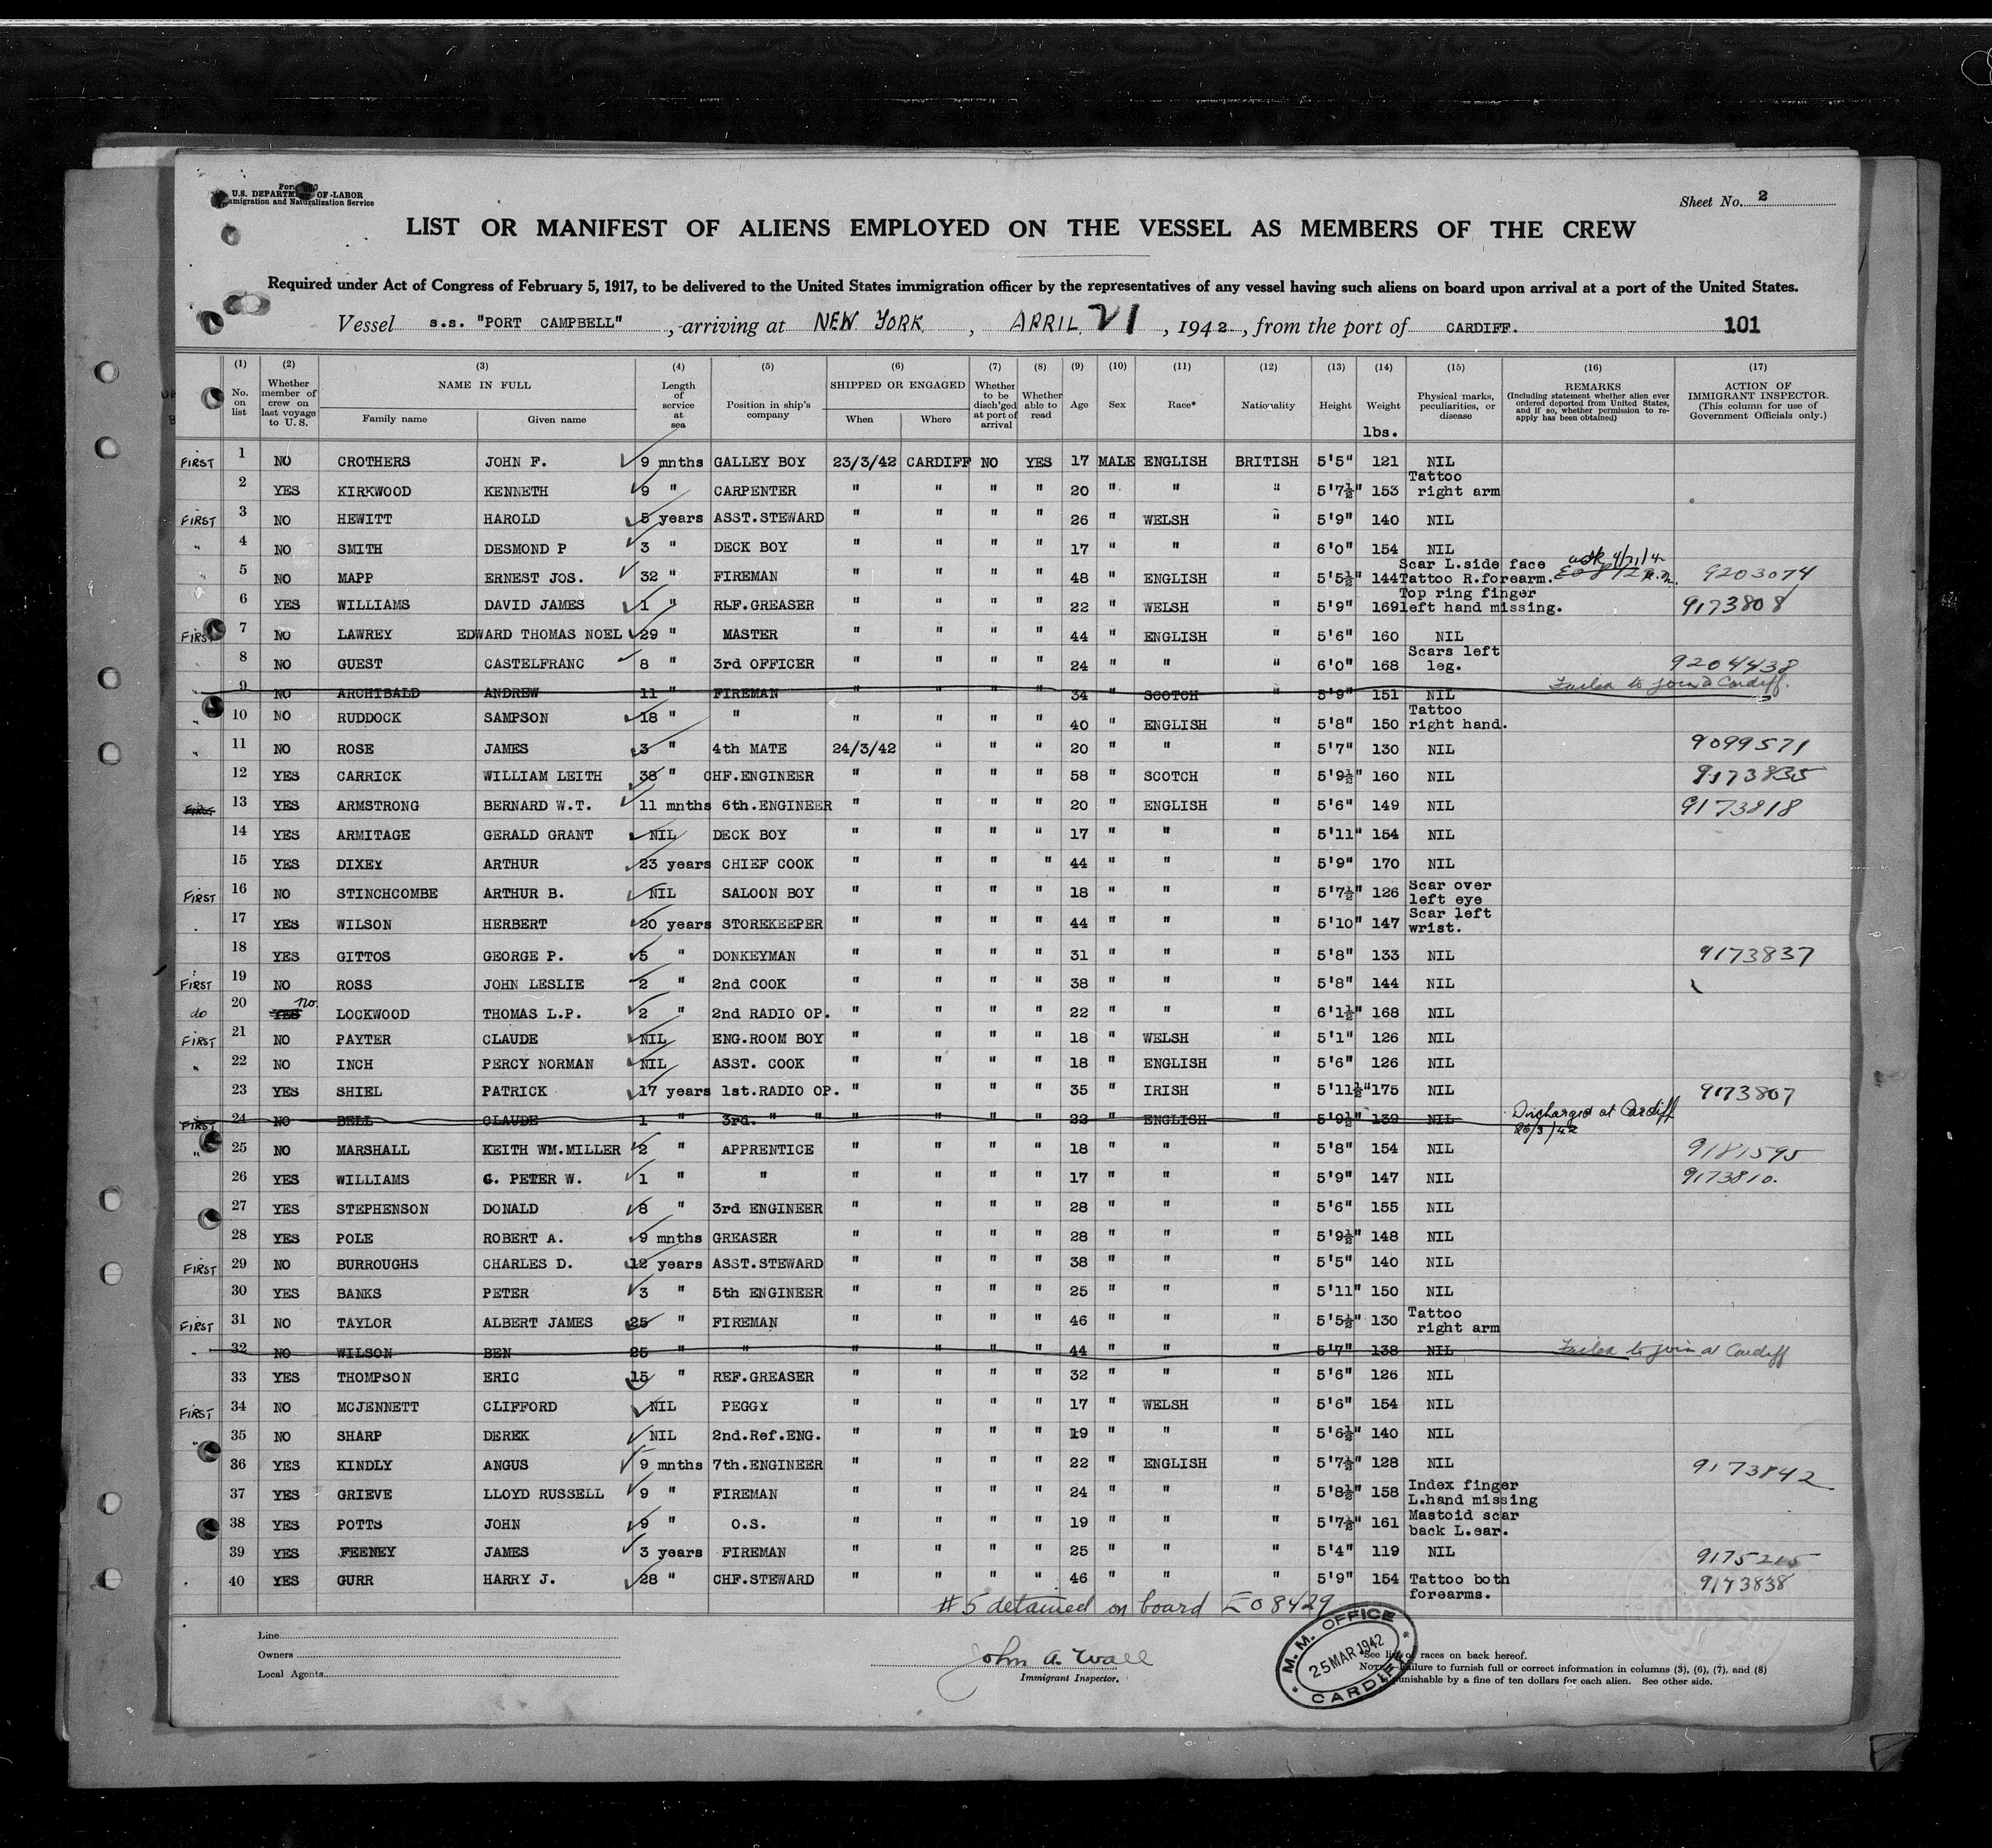 U.S. DEPARTMENT OF LABOR
Immigration and Naturalization Service
Sheet No. 2
LIST OR MANIFEST OF ALIENS EMPLOYED ON THE VESSEL AS MEMBERS OF THE CREW
Required under Act of Congress of February 5, 1917, to be delivered to the United States immigration officer by the representatives of any vessel having such aliens on board upon arrival at a port of the United States.
Vessel s.s. "PORT CAMPBELL", arriving at NEW YORK, APRIL 21, 1942, from the port of CARDIFF. 101
(1) No. on list (2) Whether member of crew on last voyage to U.S. (3) NAME IN FULL Family name Given name (4) Length of service at sea (5) Position in ship's company (6) SHIPPED OR ENGAGED When Where (7) Whether to be disch'ged at port of arrival (8) Whether able to read (9) Age (10) Sex (11) Race* (12) Nationality (13) Height (14) Weight lbs. (15) Physical marks, peculiarities, or disease (16) REMARKS (Including statement whether alien ever ordered deported from United States, and if so, whether permission to re-apply has been obtained) (17) ACTION OF IMMIGRANT INSPECTOR. (This column for use of Government Officials only.)
FIRST 1 NO CROTHERS JOHN F. 9 mnths GALLEY BOY 23/3/42 CARDIFF NO YES 17 MALE ENGLISH BRITISH 5'5" 121 NIL
2 YES KIRKWOOD KENNETH 9 " CARPENTER " " " " 20 " " " 5'7½" 153 Tattoo right arm
FIRST 3 NO HEWITT HAROLD 5 years ASST.STEWARD " " " " 26 " WELSH " 5'9" 140 NIL
" 4 NO SMITH DESMOND P 3 " DECK BOY " " " " 17 " " " 6'0" 154 NIL
" 5 NO MAPP ERNEST JOS. 32 " FIREMAN " " " " 48 " ENGLISH " 5'5½" 144 Scar L.side face Tattoo R.forearm. 9203074
6 YES WILLIAMS DAVID JAMES 1 " RLF.GREASER " " " " 22 " WELSH " 5'9" 169 Top ring finger left hand missing. 9173808
FIRST 7 NO LAWREY EDWARD THOMAS NOEL 29 " MASTER " " " " 44 " ENGLISH " 5'6" 160 NIL
8 NO GUEST CASTELFRANC 8 " 3rd OFFICER " " " " 24 " " " 6'0" 168 Scars left leg. 9204438
" 9 NO ARCHIBALD ANDREW 11 " FIREMAN " " " " 34 " SCOTCH " 5'9" 151 NIL Failed to join at Cardiff.
" 10 NO RUDDOCK SAMPSON 18 " " " " " " 40 " ENGLISH " 5'8" 150 Tattoo right hand.
" 11 NO ROSE JAMES 3 " 4th MATE 24/3/42 " " " 20 " " " 5'7" 130 NIL 9099571
12 YES CARRICK WILLIAM LEITH 38 " CHF.ENGINEER " " " " 58 " SCOTCH " 5'9½" 160 NIL 9173835
FIRST 13 YES ARMSTRONG BERNARD W.T. 11 mnths 6th.ENGINEER " " " " 20 " ENGLISH " 5'6" 149 NIL 9173818
14 YES ARMITAGE GERALD GRANT NIL DECK BOY " " " " 17 " " " 5'11" 154 NIL
15 YES DIXEY ARTHUR 23 years CHIEF COOK " " " " 44 " " " 5'9" 170 NIL
FIRST 16 NO STINCHCOMBE ARTHUR B. NIL SALOON BOY " " " " 18 " " " 5'7½" 126 Scar over left eye
17 YES WILSON HERBERT 20 years STOREKEEPER " " " " 44 " " " 5'10" 147 Scar left wrist.
18 YES GITTOS GEORGE P. 5 " DONKEYMAN " " " " 31 " " " 5'8" 133 NIL 9173837
FIRST 19 NO ROSS JOHN LESLIE 2 " 2nd COOK " " " " 38 " " " 5'8" 144 NIL
do 20 YES no. LOCKWOOD THOMAS L.P. 2 " 2nd RADIO OP. " " " " 22 " " " 6'1½" 168 NIL
FIRST 21 NO PAYTER CLAUDE NIL ENG.ROOM BOY " " " " 18 " WELSH " 5'1" 126 NIL
" 22 NO INCH PERCY NORMAN NIL ASST. COOK " " " " 18 " ENGLISH " 5'6" 126 NIL
23 YES SHIEL PATRICK 17 years 1st.RADIO OP. " " " " 35 " IRISH " 5'11½" 175 NIL 9173807
FIRST 24 NO BELL CLAUDE 1 " 3rd. " " " " " " 22 " ENGLISH " 5'9½" 139 NIL Discharged at Cardiff 25/3/42
" 25 NO MARSHALL KEITH WM.MILLER 2 " APPRENTICE " " " " 18 " " " 5'8" 154 NIL 9181595
26 YES WILLIAMS G. PETER W. 1 " " " " " " 17 " " " 5'9" 147 NIL 9173810.
27 YES STEPHENSON DONALD 8 " 3rd ENGINEER " " " " 28 " " " 5'6" 155 NIL
28 YES POLE ROBERT A. 9 mnths GREASER " " " " 28 " " " 5'9½" 148 NIL
FIRST 29 NO BURROUGHS CHARLES D. 12 years ASST.STEWARD " " " " 38 " " " 5'5" 140 NIL
30 YES BANKS PETER 3 " 5th ENGINEER " " " " 25 " " " 5'11" 150 NIL
FIRST 31 NO TAYLOR ALBERT JAMES 25 " FIREMAN " " " " 46 " " " 5'5½" 130 Tattoo right arm
" 32 NO WILSON BEN 25 " " " " " " 44 " " " 5'7" 138 NIL Failed to join at Cardiff
33 YES THOMPSON ERIC 15 " REF.GREASER " " " " 32 " " " 5'6" 126 NIL
FIRST 34 NO MCJENNETT CLIFFORD NIL PEGGY " " " " 17 " WELSH " 5'6" 154 NIL
" 35 NO SHARP DEREK NIL 2nd.Ref.ENG. " " " " 19 " " " 5'6½" 140 NIL
36 YES KINDLY ANGUS 9 mnths 7th.ENGINEER " " " " 22 " ENGLISH " 5'7½" 128 NIL 9173842
37 YES GRIEVE LLOYD RUSSELL 9 " FIREMAN " " " " 24 " " " 5'8½" 158 Index finger L.hand missing
38 YES POTTS JOHN 9 " O.S. " " " " 19 " " " 5'7½" 161 Mastoid scar back L.ear.
39 YES FEENEY JAMES 3 years FIREMAN " " " " 25 " " " 5'4" 119 NIL 9175215
40 YES GURR HARRY J. 28 " CHF.STEWARD " " " " 46 " " " 5'9" 154 Tattoo both forearms. 9173838
#5 detained on board E08429
Line
Owners
Local Agents
John A. Wall
Immigrant Inspector.
M. M. OFFICE
25 MAR 1942
CARDIFF
*See list of races on back hereof.
NOTE.—Failure to furnish full or correct information in columns (3), (6), (7), and (8)
punishable by a fine of ten dollars for each alien. See other side.